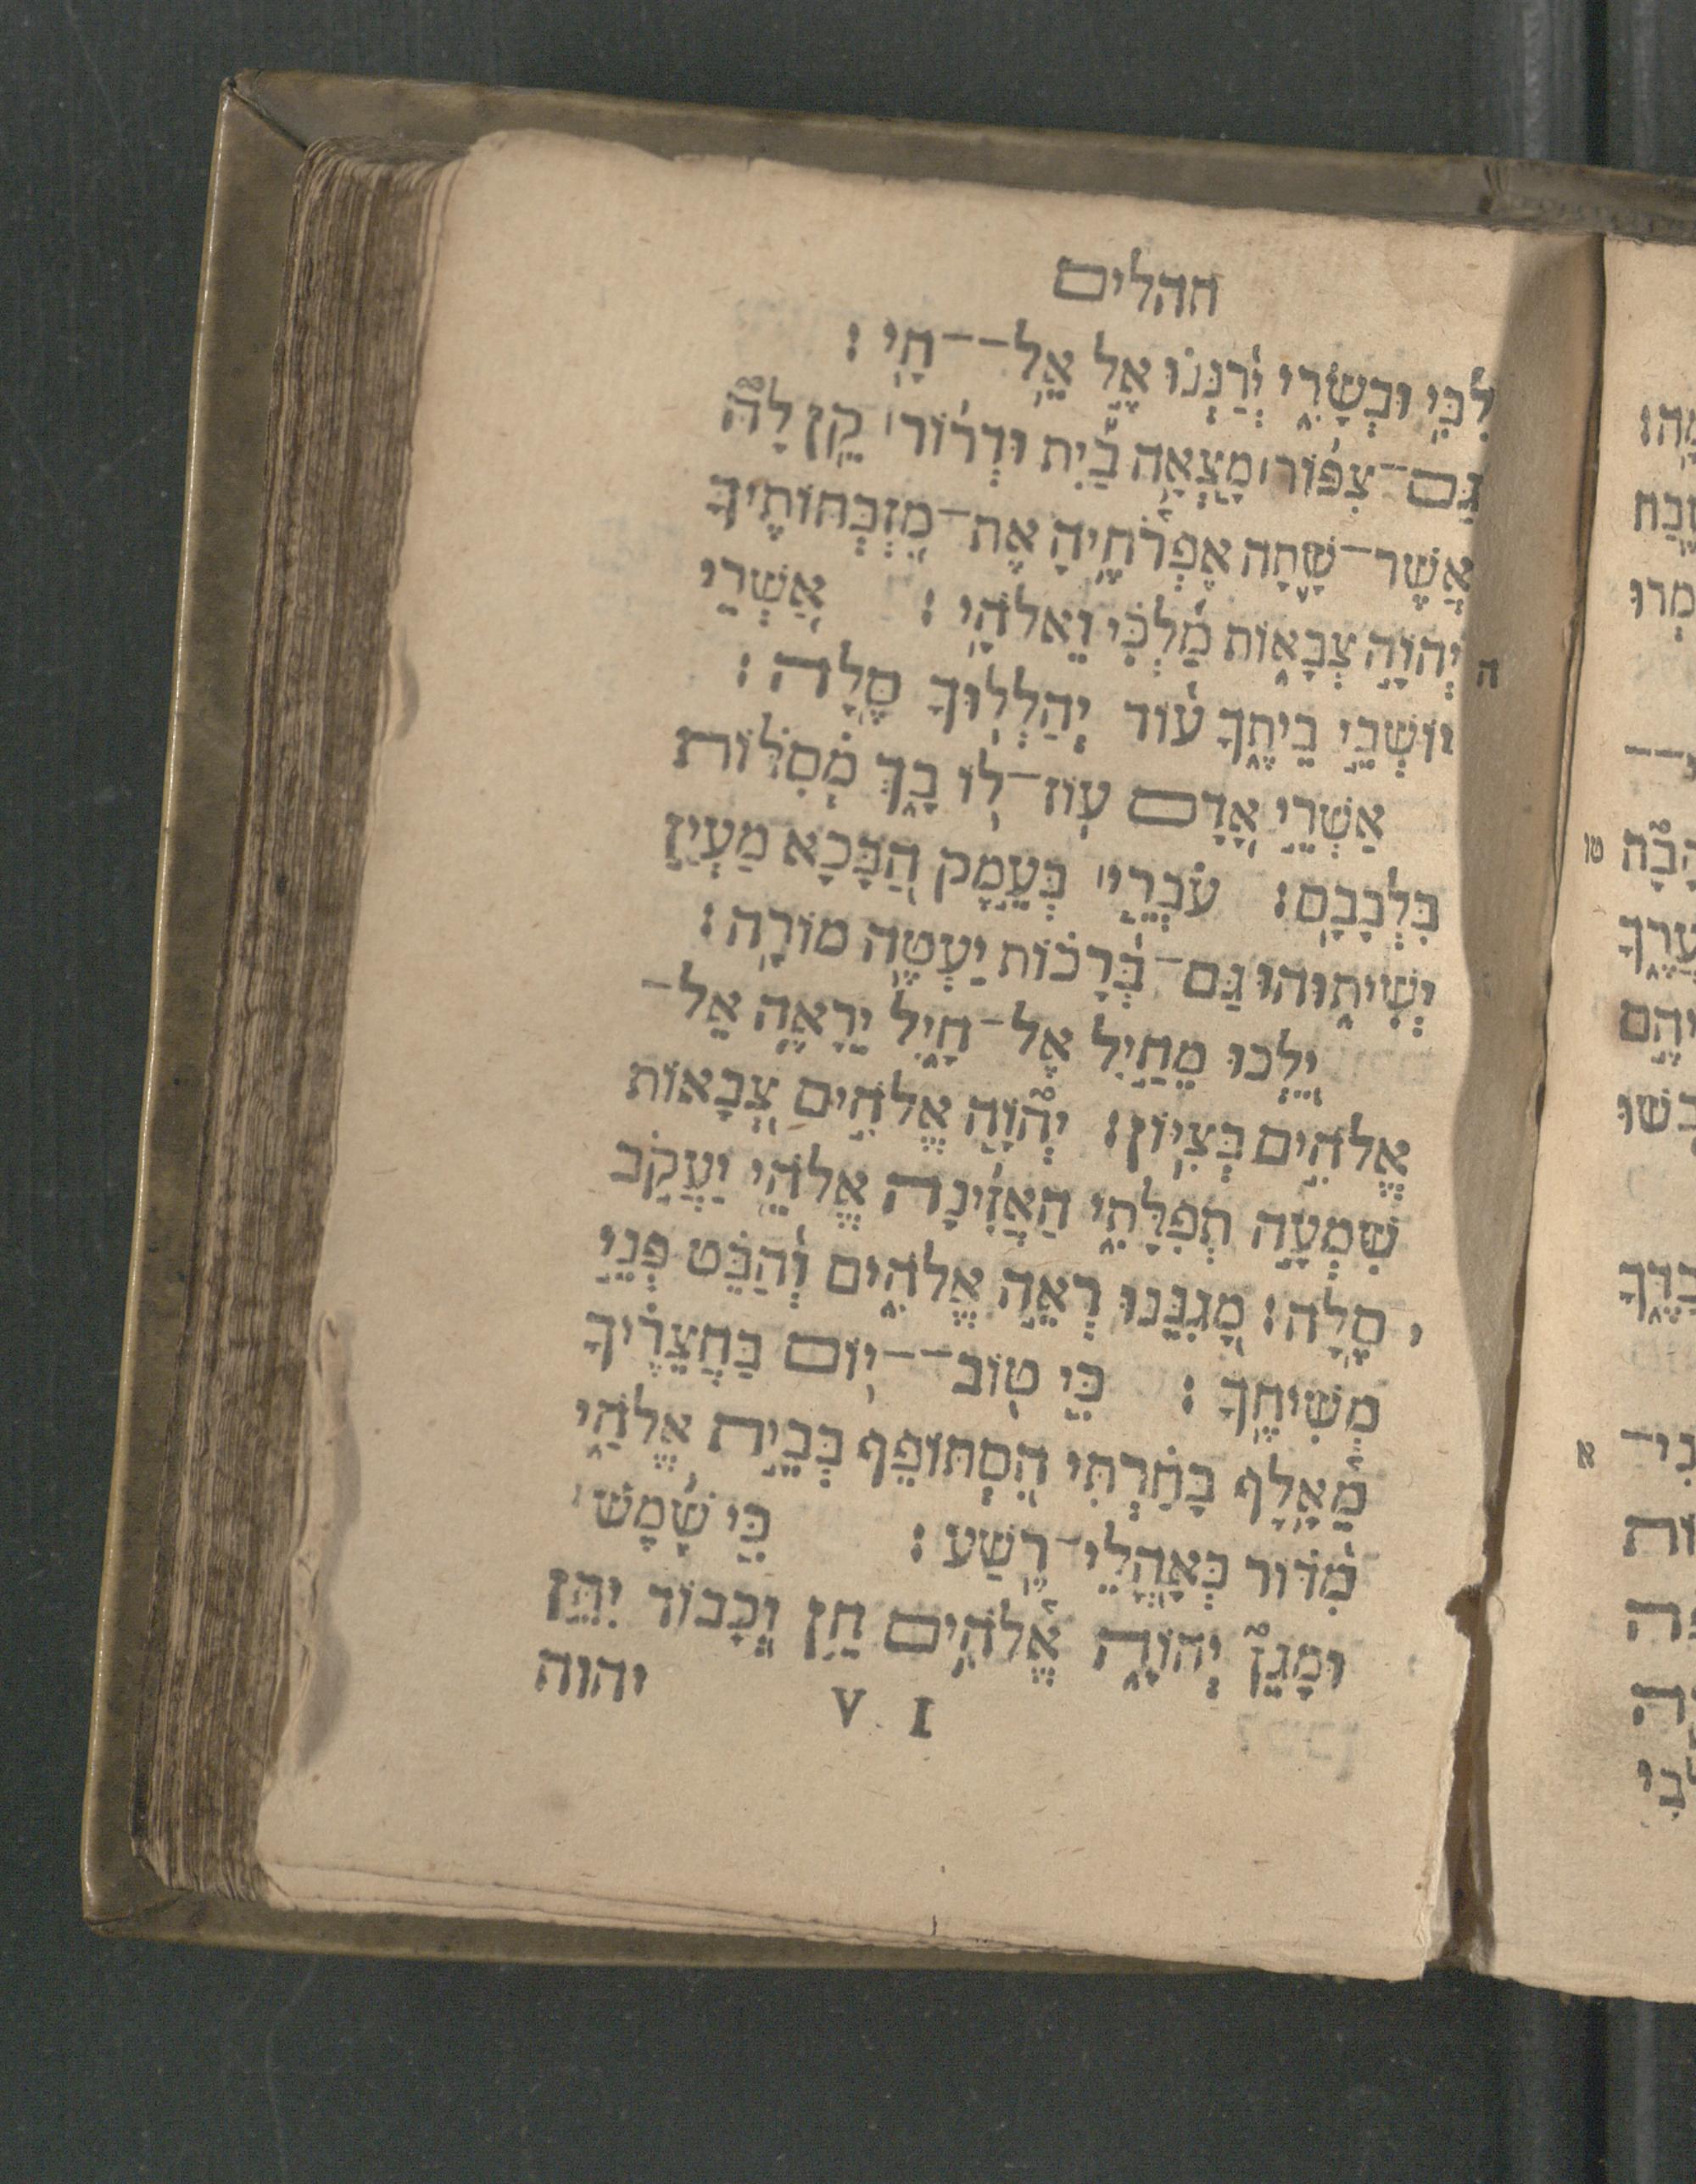 תהלים
לִבִּ֥י וּבְשָׂרִ֑י יְ֝רַנְּנ֗וּ אֶ֣ל אֵֽל־־חָֽי׃
גַּם־צִפּ֨וֹר׀ מָ֪צְאָ֡ה בַ֡יִת וּדְר֤וֹר׀ קֵ֥ן לָהּ֮
אֲשֶׁר־שָׁ֪תָה אֶפְרֹ֫חֶ֥יהָ אֶֽת־מִ֭זְבְּחוֹתֶיךָ
יְהוָ֣ה צְבָא֑וֹת מַ֝לְכִּ֗י וֵאלֹהָֽי׃ אַ֭שְׁרֵי
ה
יוֹשְׁבֵ֣י בֵיתֶ֑ךָ ע֝֗וֹד יְֽהַלְל֥וּךָ סֶּֽלָה׃
אַשְׁרֵ֣י אָ֭דָם עֽוֹז־ל֥וֹ בָ֑ךְ מְ֝סִלּ֗וֹת
בִּלְבָבָֽם׃ עֹבְרֵ֤י׀ בְּעֵ֣מֶק הַ֭בָּכָא מַעְיָ֣ן
יְשִׁית֑וּהוּ גַּם־בְּ֝רָכ֗וֹת יַעְטֶ֥ה מוֹרֶֽה׃
יֵ֭לְכוּ מֵחַ֣יִל אֶל־חָ֑יִל יֵרָאֶ֖ה אֶל־
אֱלֹהִ֣ים בְּצִיּֽוֹן׃ יְה֘וָ֤ה אֱלֹהִ֣ים צְ֭בָאוֹת
שִׁמְעָ֣ה תְפִלָּתִ֑י הַאֲזִ֨ינָה אֱלֹהֵ֖י יַעֲקֹ֣ב
סֶֽלָה׃ מָ֭גִנֵּנוּ רְאֵ֣ה אֱלֹהִ֑ים וְ֝הַבֵּ֗ט פְּנֵ֣י
י
מְשִׁיחֶֽךָ׃ כִּ֤י טֽוֹב־־י֥וֹם בַּחֲצֵרֶ֗יךָ
מֵ֫אָ֥לֶף בָּחַ֗רְתִּי הִ֭סְתּוֹפֵף בְּבֵ֣ית אֱלֹהַ֑י
מִ֝דּ֗וּר בְּאָהֳלֵי־רֶֽשַׁע׃ כִּ֤י שֶׁ֨מֶשׁ׀
וּמָגֵן֮ יְהוָ֪ה אֱלֹ֫הִ֥ים חֵ֣ן וְ֭כָבוֹד יִתֵּ֣ן
יהוה
V I